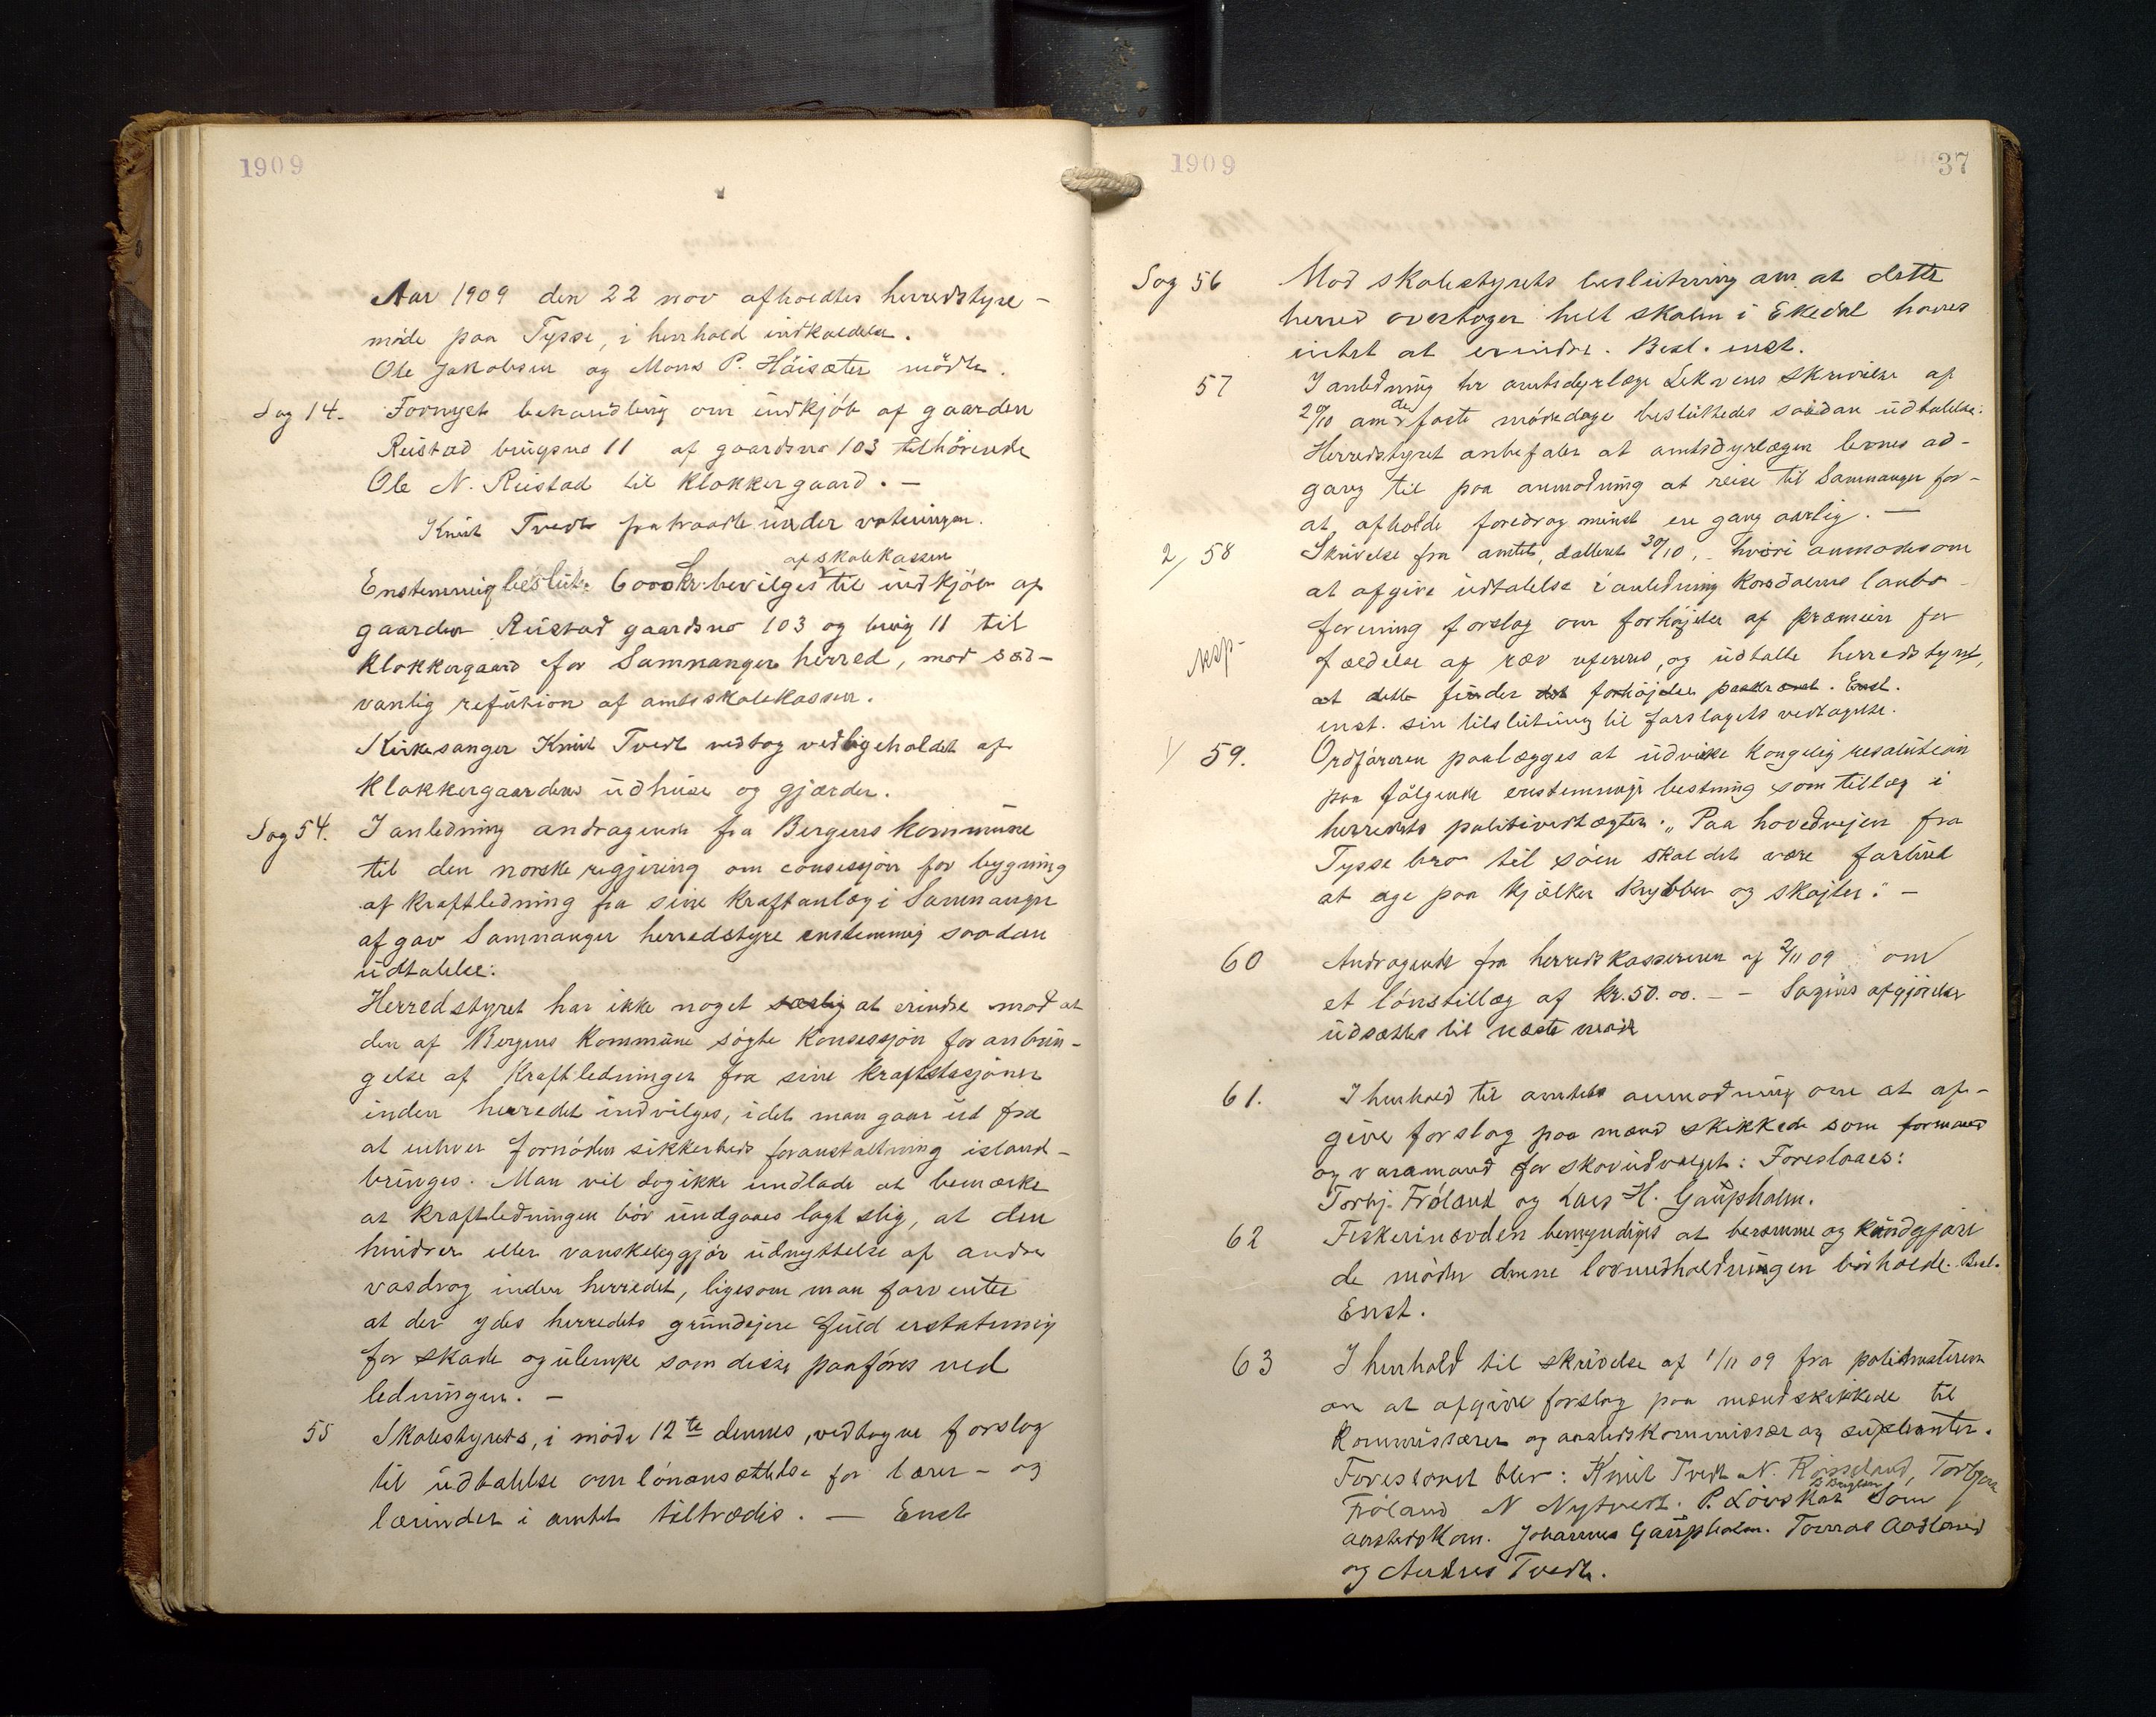 1909
Aar 1909 den 22 nov afholdtes herredstyre-
møde paa Tysse, i henhold indkaldelse.
Ole Jakobsen og Mons P. Høisæter mødte.
Sag 14. Fornyet behandling om indkjøb af gaarden
Rustad brugsno 11 af gaardsno 103 tilhørende
Ole N. Rustad til klokkergaard. —
Knut Tvedt fratraadte under voteringen.
af skolekassen
Enstemmig beslut. 6000 Kr. bevilges til indkjøb af
gaarden Rustad gaardsno 103 og brug 11 til
klokkergaard for Samnanger herred, mod sæd-
vanlig refusion af amtsskolekassen.
Kirkesanger Knut Tvedt vedtog vedligeholdet af
klokkergaardens udhuse og gjærder.
Sag 54. I anledning andragende fra Bergens kommune
til den norske regjering om consesjon for bygning
af kraftledning fra sine kraftanlæg i Samnanger
afgav Samnanger herredstyre enstemmig saadan
udtalelse:
Herredstyret har ikke noget særlig at erindre mod at
den af Bergens Kommune søgte Konsesjon for anbrin-
gelse af Kraftledninger fra sine kraftstasjoner
inden herredet indvilges, idet man gaar ud fra
at enhver fornøden sikkerheds foranstaltning istand-
bringes. Man vil dog ikke undlade at bemærke
at kraftledningen bør undgaaes lagt slig, at den
hindrer eller vanskeliggjør udnyttelse af andre
vasdrag inden herredet, ligesom man forventer
at der ydes herredets grundejere fuld erstatning
for skade og ulempe som disse paaføres ved
ledningen. —
55 Skolestyrets, i møde 12te dennes, vedtagne forslag
til udtalelse om lønansættelse for lærer- og
lærinder i amtet tiltrædes. — Enst
1909 37
Sag 56 Mod skolestyrets beslutning om at dette
herred overtager helt skolen i Ekedal haves
intet at erindre. Besl. enst.
57 I anledning hr amtsdyrlæge Lekvens skrivelse af
20/10 om de faste mødedage besluttedes saadan udtalelse:
Herredstyret anbefaler at amtsdyrlægen levnes ad-
gang til paa anmodning at reise til Samnanger for-
at afholde foredrag mindst en gang aarlig. —
2/ 58 Skrivelse fra amtet, datteret 30/10, hvori anmodes om
at afgive udtalelse i anledning landbo-
forening forslag om forhøjelse af præmien for
exp- fældelse af ræv refereres, og udtalte herredstyret,
at dette finder det forhøjelse paakrævet. Enst.
enst. sin tilslutning til forslagets vedtagelse.
1/ 59. Ordføreren paalægges at udvirke kongelig resolution
paa følgende enstemmige bestning som tillæg i
herredets politivedtægter: „Paa hovedvejen fra
Tysse bro til søen skal det være forbudt
at age paa kjælker krybber og skøjter." —
60 Andragende fra herredskassereren af 2/11 09 om
et lønstillæg af kr. 50.00. — — Sagens afgjørelse
udsættes til næste møde
61. I henhold til amtets anmodning om at af-
give forslag paa mænd skikkede som formand
og varamand for skovudvalget: Foreslaaes:
Torbj. Frøland og Lars H. Gaupholm.
62 Fiskerinævden bemyndiges at beramme og kundgjøre
de møder denne lovmedholdningen bør holde. Besl.
Enst.
63 I henhold til skrivelse af 1/11 09 fra politimesteren
om at afgive forslag paa mænd skikkede til
kommissærer og aastedskommissær og supleanter.
Foreslaaet blev: Knut Tvedt N. Røsseland, Torbjørn
Frøland N Nytvedt. P. Løvskar som
aastedskom. Johannes Gaupholm. Aadland
og Andreas Tvedt.